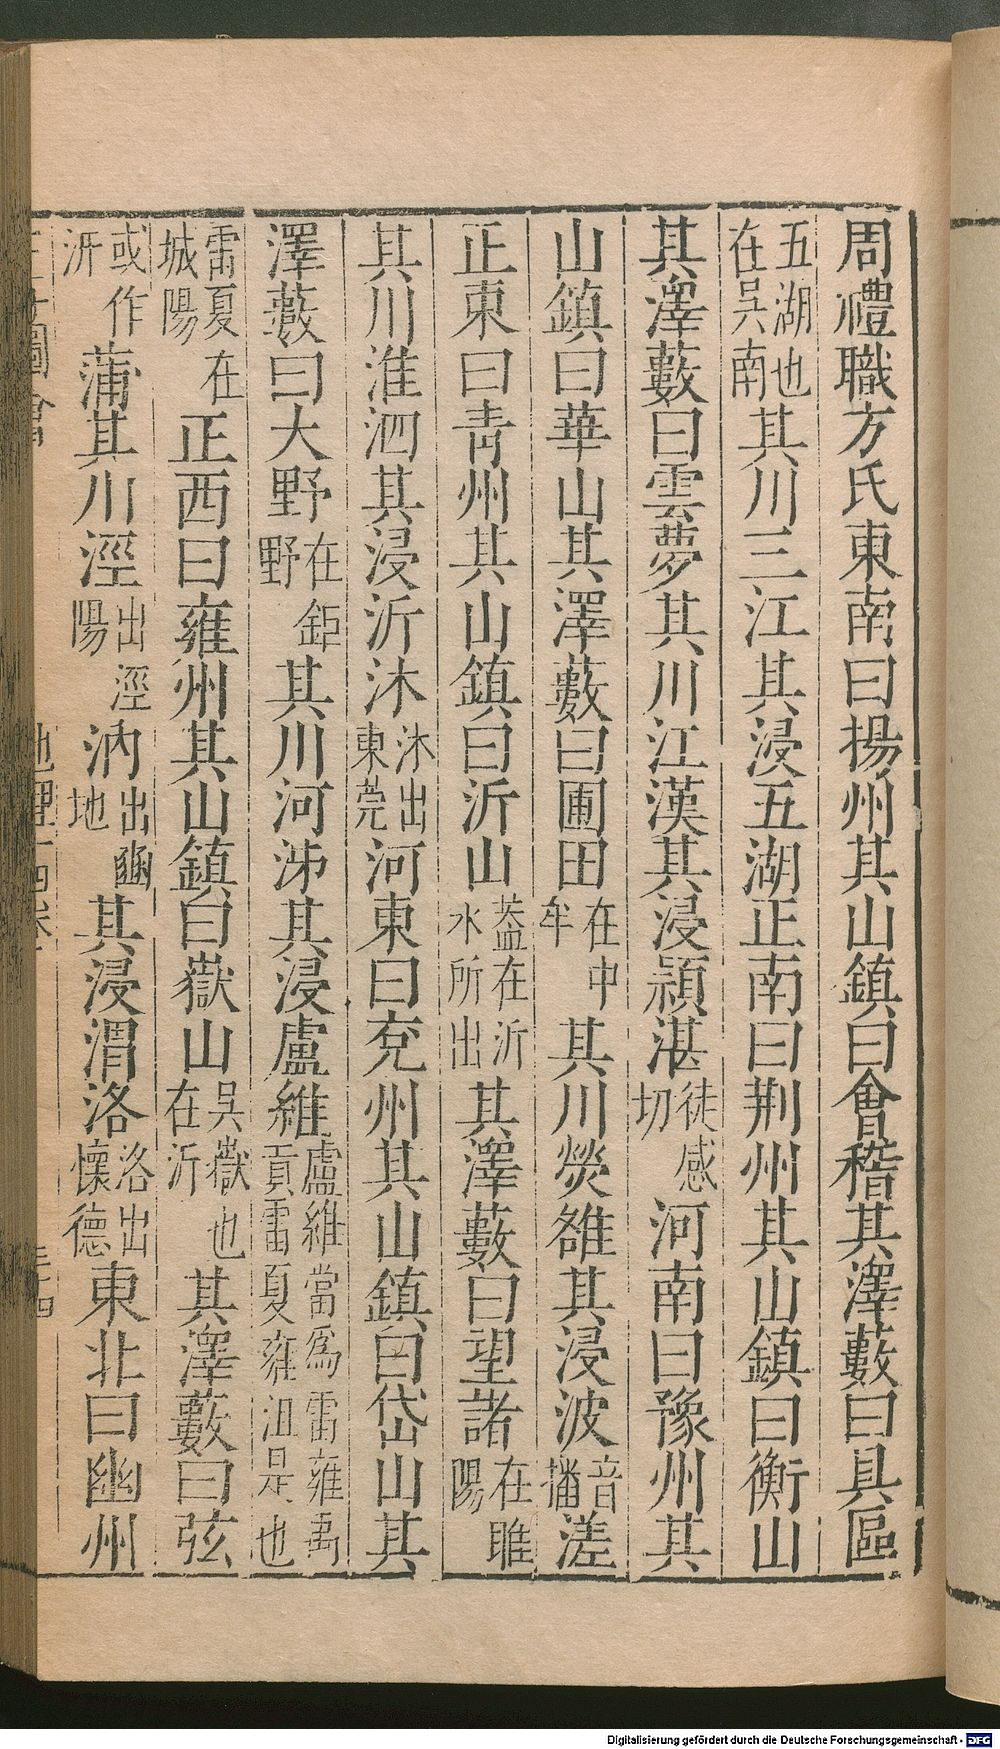 周禮職方氏東南曰揚州其山鎮曰會稽其澤藪曰具區
五湖也在吳南其川三江其浸五湖正南曰荆州其山鎮曰衡山
其澤藪曰雲夢其川江漢其浸潁湛徒感切河南曰豫州其
山鎮曰華山其澤藪曰圃田在中牟其川熒雒其浸波音播溠
正東曰青州其山鎮曰沂山蓋在沂水所出其澤藪曰望諸在睢陽
其川淮泗其浸沂沐沐出東莞河東曰兗州其山鎮曰岱山其
澤藪曰大野在鉅野其川河泲其浸盧維盧維當爲雷雍禹貢雷夏雍沮是也
雷夏在城陽正西曰雍州其山鎮曰嶽山吳嶽也在汧其澤藪曰弦
或作汧蒲其川涇出涇陽汭出豳地其浸渭洛洛出懷德東北曰幽州
圖會
地理十四卷
Digitalisierung gefördert durch die Deutsche Forschungsgemeinschaft - DFG